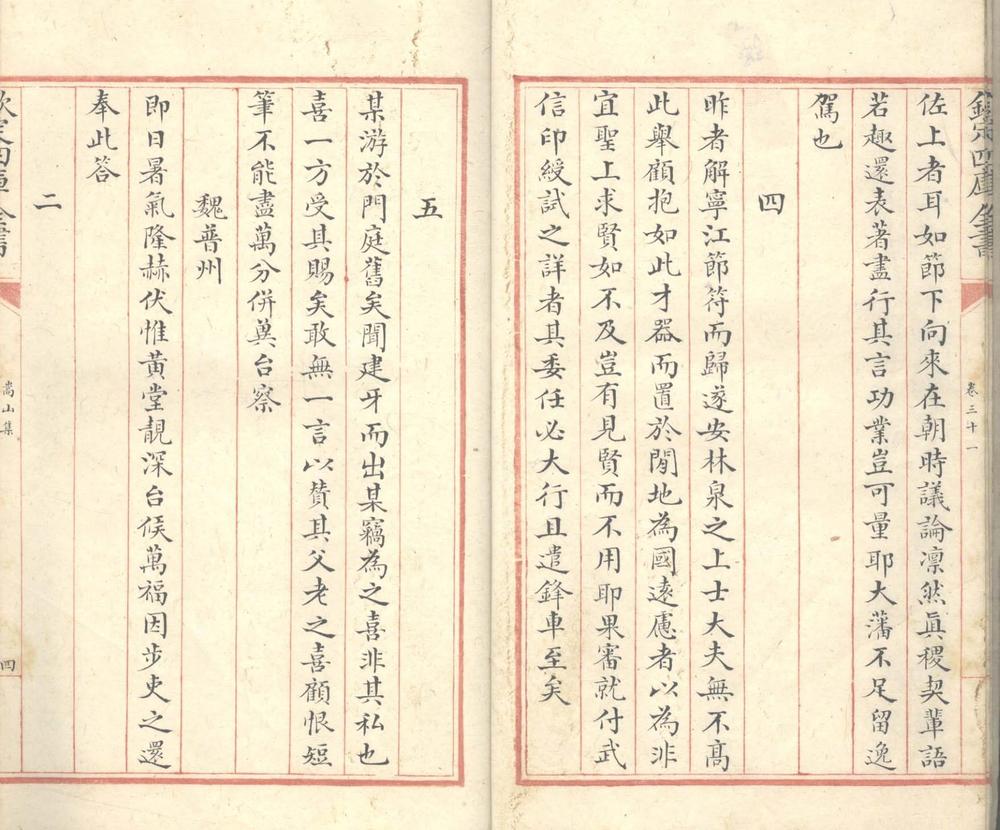 欽定四庫全書
卷三十一
佐上者耳如節下向來在朝時議論凛然眞稷契輩語
若趣還表著盡行其言功業豈可量耶大藩不足留逸
駕也
四
昨者解寧江節符而歸遂安林泉之上士大夫無不髙
此舉顧抱如此才器而置於閒地為國逺慮者以為非
宜聖上求賢如不及豈有見賢而不用耶果審就付武
信印綬試之詳者其委任必大行且遣鋒車至矣
五
某游於門庭舊矣聞建牙而出某竊為之喜非其私也
喜一方受其賜矣敢無一言以賛其父老之喜顧恨短
筆不能盡萬分併兾台察
魏普州
即日暑氣隆赫伏惟黄堂靚深台候萬福因步吏之還
奉此答
二
欽定四庫全書
嵩山集
四